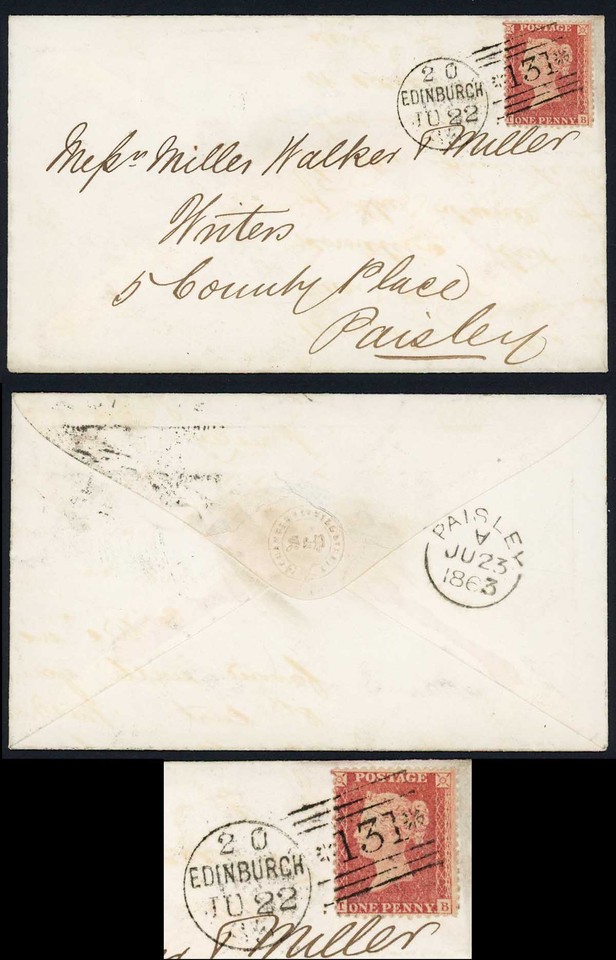 POSTAGE
131
ONE PENNY
B
20
EDINBURGH
JU 22
Messrs Miller Walker & Miller
Writers
5 County Place
Paisley
PAISLEY
A
JU 23
1863
POSTAGE
131
ONE PENNY
B
20
EDINBURGH
JU 22
& Miller